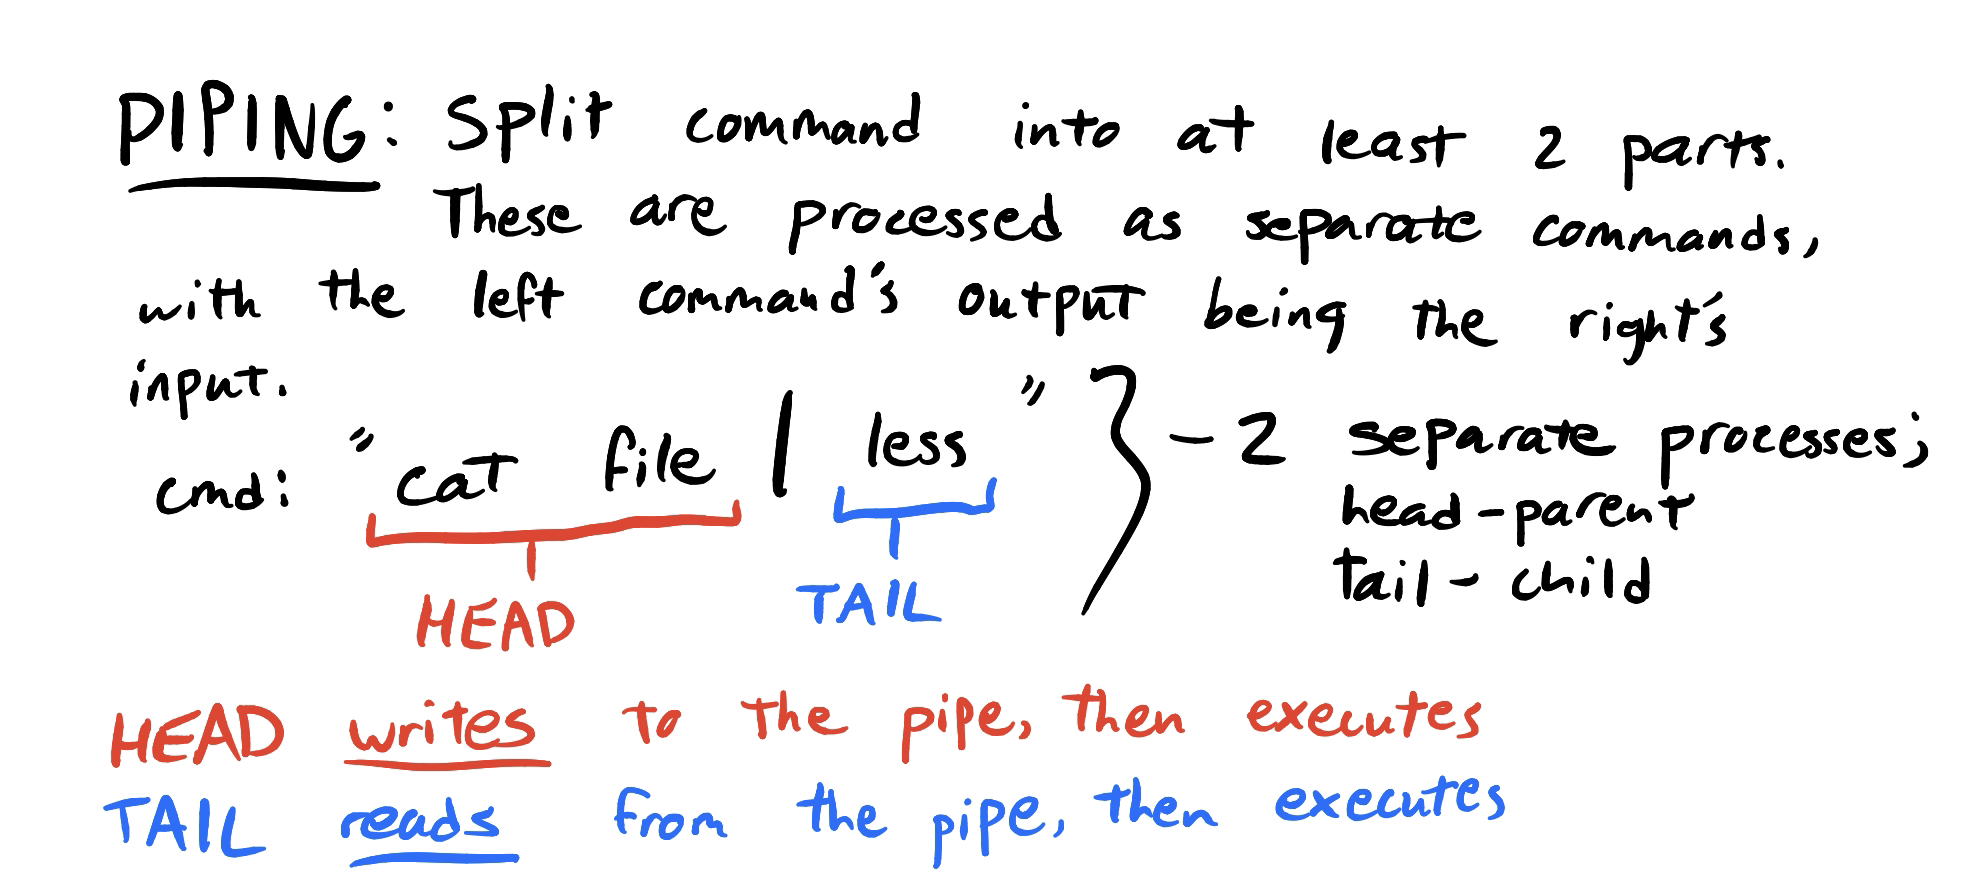 PIPING: Split command into at least 2 parts.
These are processed as separate commands,
with the left command's output being the right's
input.
cmd: "cat file | less" } - 2 separate processes;
head - parent
tail - child
HEAD TAIL
HEAD writes to the pipe, then executes
TAIL reads from the pipe, then executes